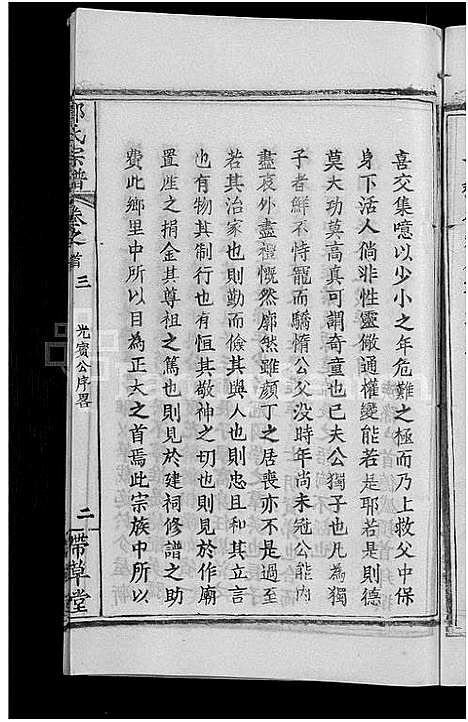 喜交集噫以少小之年危難之極而乃上救父中保
身下活人倘非性靈儆通權變能若是耶若是則德
莫大功莫高真可謂奇童也已夫公獨子也凡為獨
子者鮮不恃寵而驕惰公父没時年尚未冠公能內
盡哀外盡禮慨然廓然雖顏丁之居喪亦不是過至
若其治家也則勤而儉其與人也則忠且有其立言
也有物其制行也有恒其敬神之切也則見於作廟
置產之捐金其尊祖之篤也則見於建祠修譜之助
費此鄉里中所以目為正大之首焉此宗族中所以
鄭氏宗譜 卷之首 三 光賓公序畧 二 帶草堂